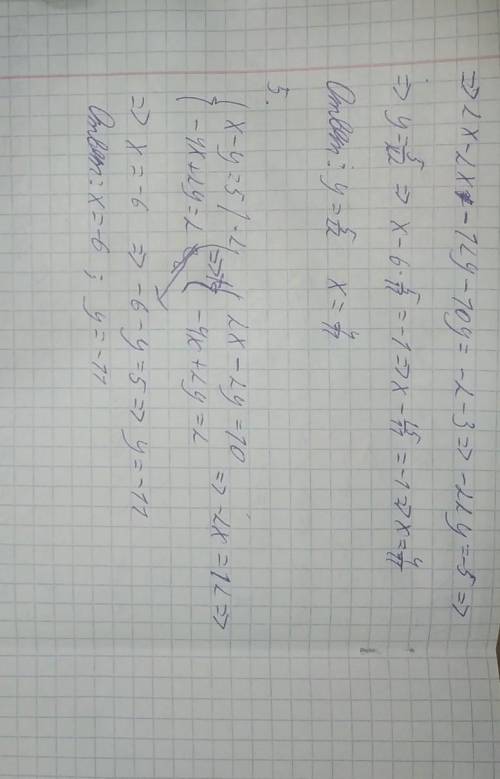 ⇒ 2x-2x-12y-10y=-2-3 ⇒ -22y=-5 ⇒
⇒ y=5/22 ⇒ x-6·5/22=-1 ⇒ x-15/11=-1 ⇒ x=4/11
Ответ: y=5/22 x=4/11
3.
{ x-y=5 |·2 ⇒ { 2x-2y=10 ⇒ -2x=12 ⇒
{ -4x+2y=2 { -4x+2y=2
⇒ x=-6 ⇒ -6-y=5 ⇒ y=-11
Ответ: x=-6; y=-11